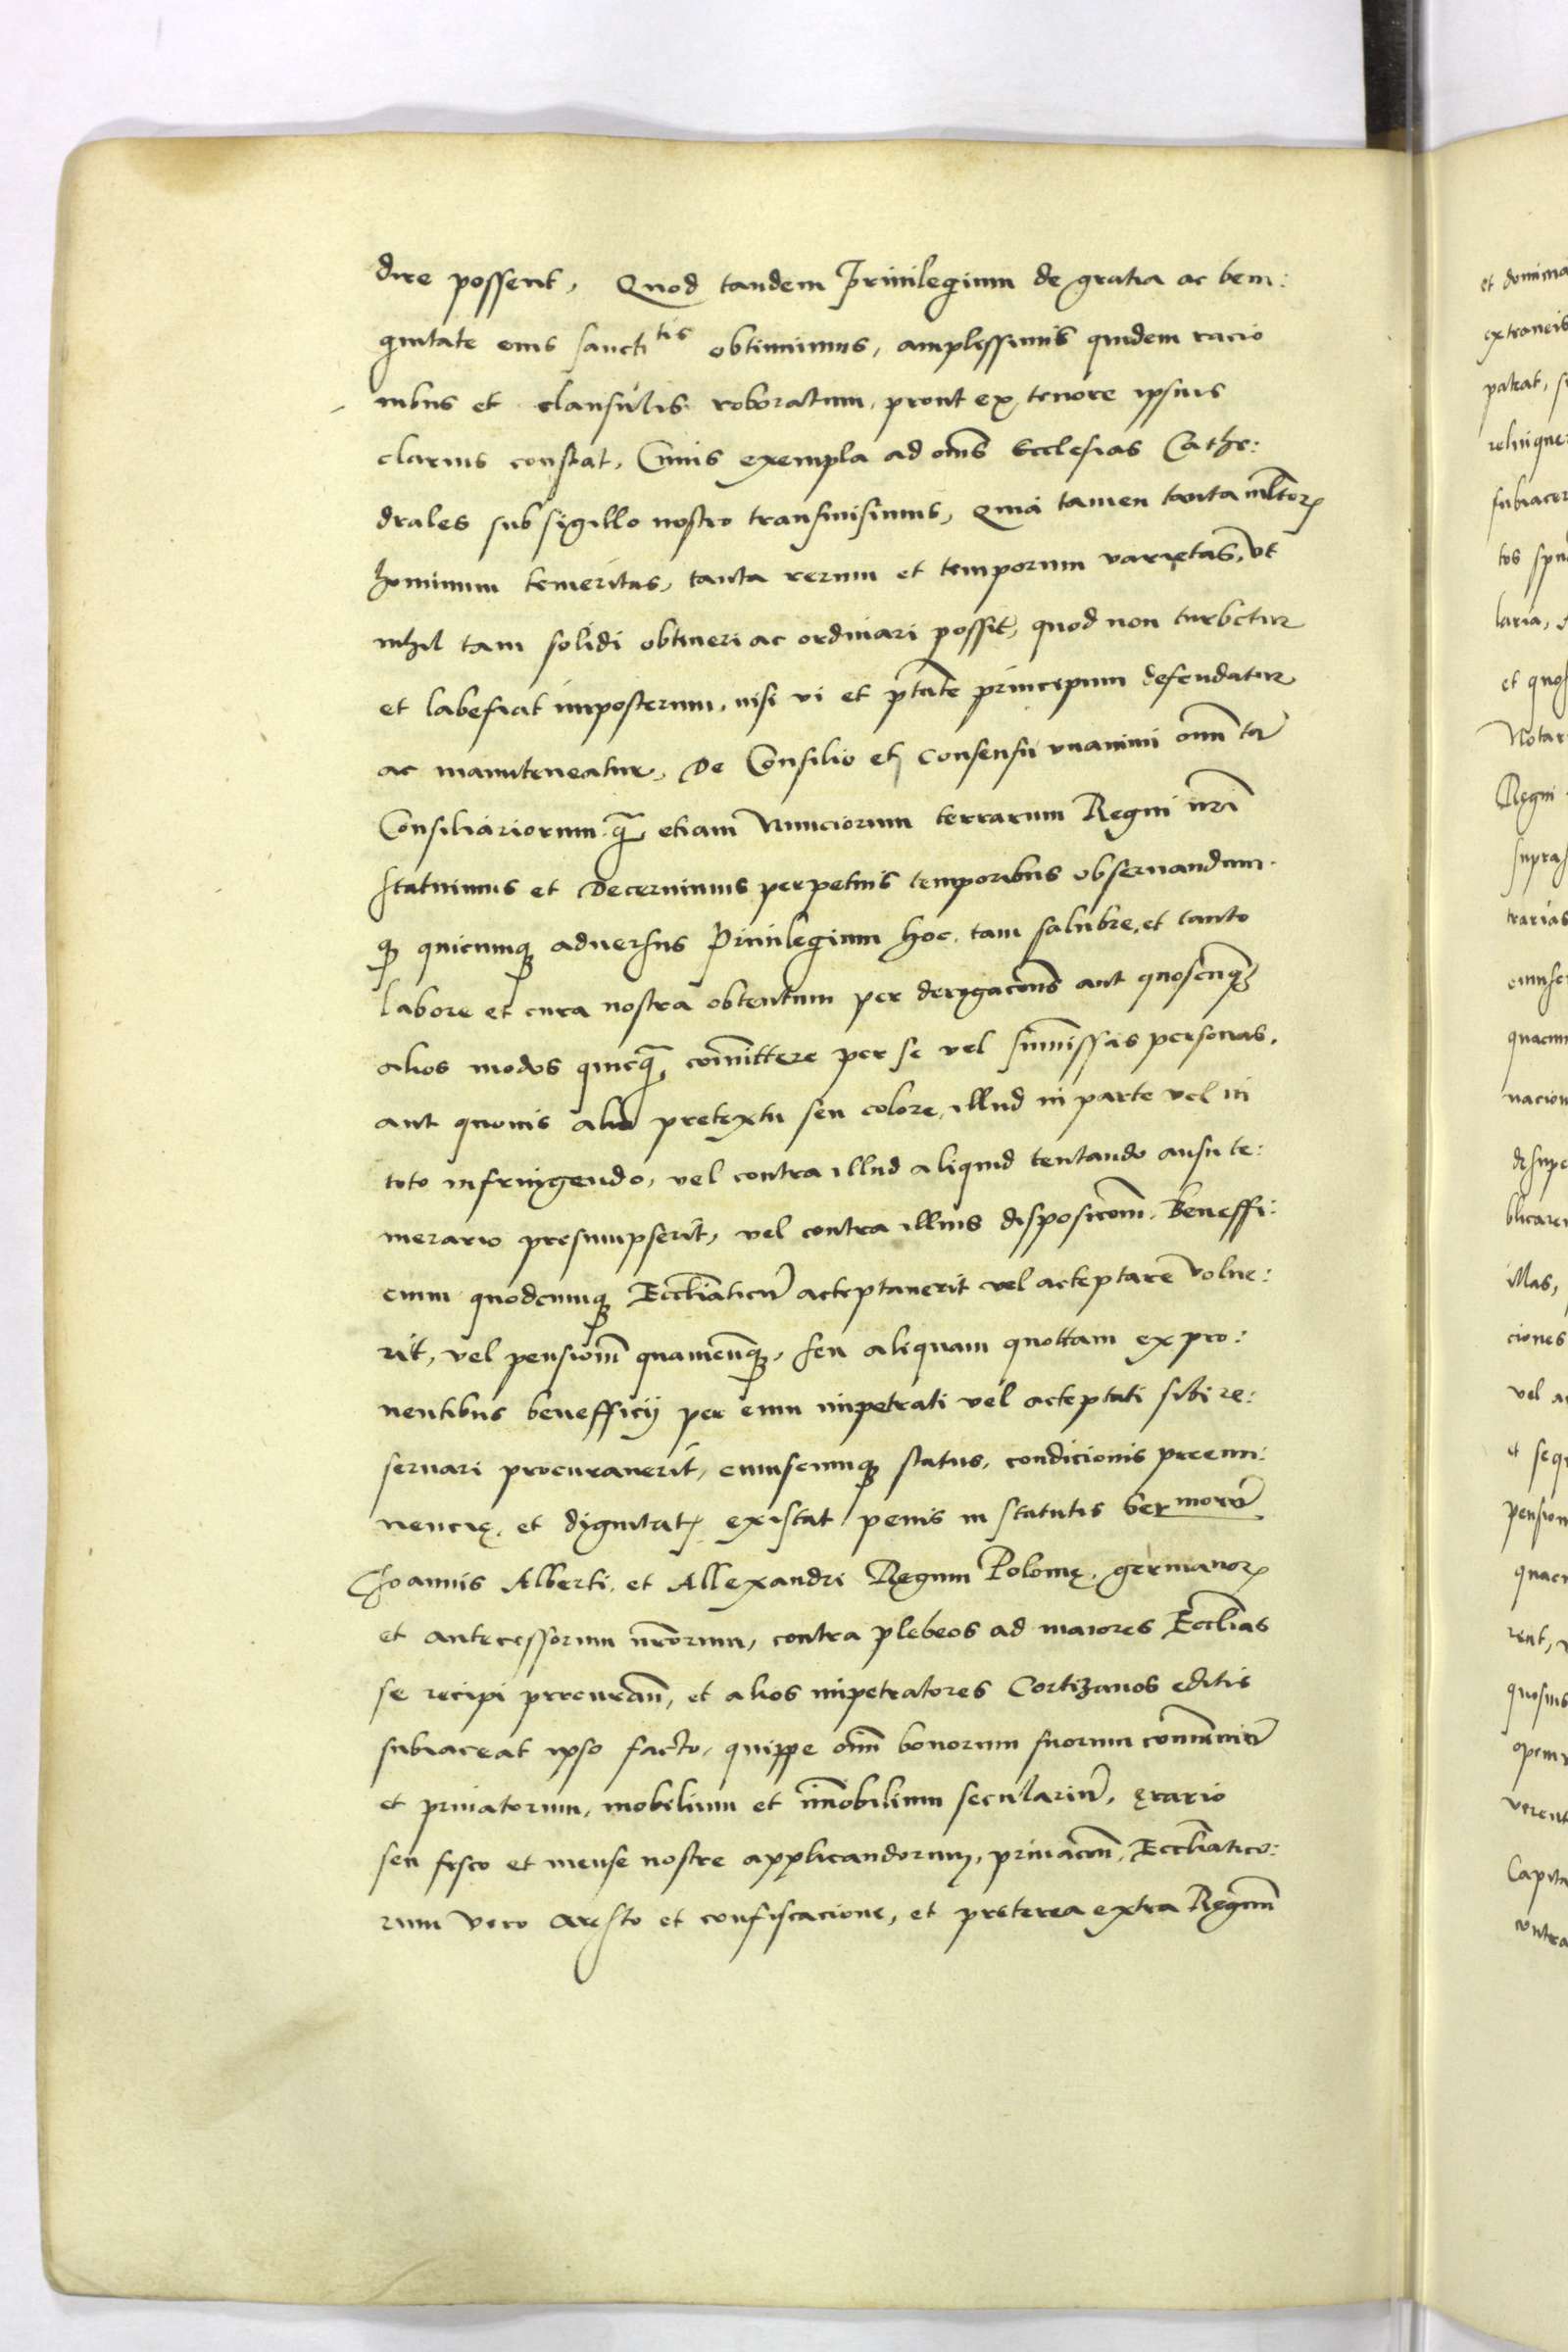 dire possent, Quod tandem Privilegium de gratia ac beni:
gnitate eius sanctitis obtinuimus, amplissimis quidem racio
nibus et clausulis roboratum, prout ex tenore ipsius
clarius constat, Cuius exempla ad oms Ecclesias Cathe:
drales sub sigillo nostro transmisimus, Quia tamen tanta mltor
hominum temeritas, tanta rerum et temporum varietas, vt
nihil tam solidi obtineri ac ordinari possit, quod non turbetur
et labefiat imposterum, nisi vi et ptate principum defendatur
ac manuteneatur, De Consilio et consensu vnanimi omn ta
Consiliariorum q etiam Nunciorum terrarum Regni nri
statuimus et Decernimus perpetuis temporibus obseruandum
q quicunq aduersus Priuilegium hoc, tam salubre, et tanto
labore et cura nostra obtentum per derogacons aut quoscunq
alios modos quicq comittere per se vel sumissas personas,
aut quouis alio pretextu seu colore, illud in parte vel in
toto infringendo, vel contra illud aliquid tentando ausu te:
merario presumpserit, vel contra illius disposicom Beneffi:
cium quodcumq Eccliaticu acceptauerit vel acceptare volue:
rit, vel pensiom quamcunq, seu aliquam quottam ex pro:
uentibus benefficij per eum impetrati vel acceptati sibi re:
seruari procurauerit, cuiuscunq status, condicionis preemi:
nencię, et dignitat existat penis in statutis ser moru
Ioannis Alberti, et Allexandri Regum Polonię, germanor
et antecessorum nrorum, contra plebeos ad maiores Ecclias
se recipi procuran, et alios impetratores Cortizanos editis
subiaceat ipso facto, quippe oim bonorum suorum comuniu
et priuatorum, mobilium et imobilium seculariu, ęrario
seu fisco et mense nostre applicandorum, priuacom, Eccliatico:
rum vero aresto et confiscacione, et preterea extra Regnum